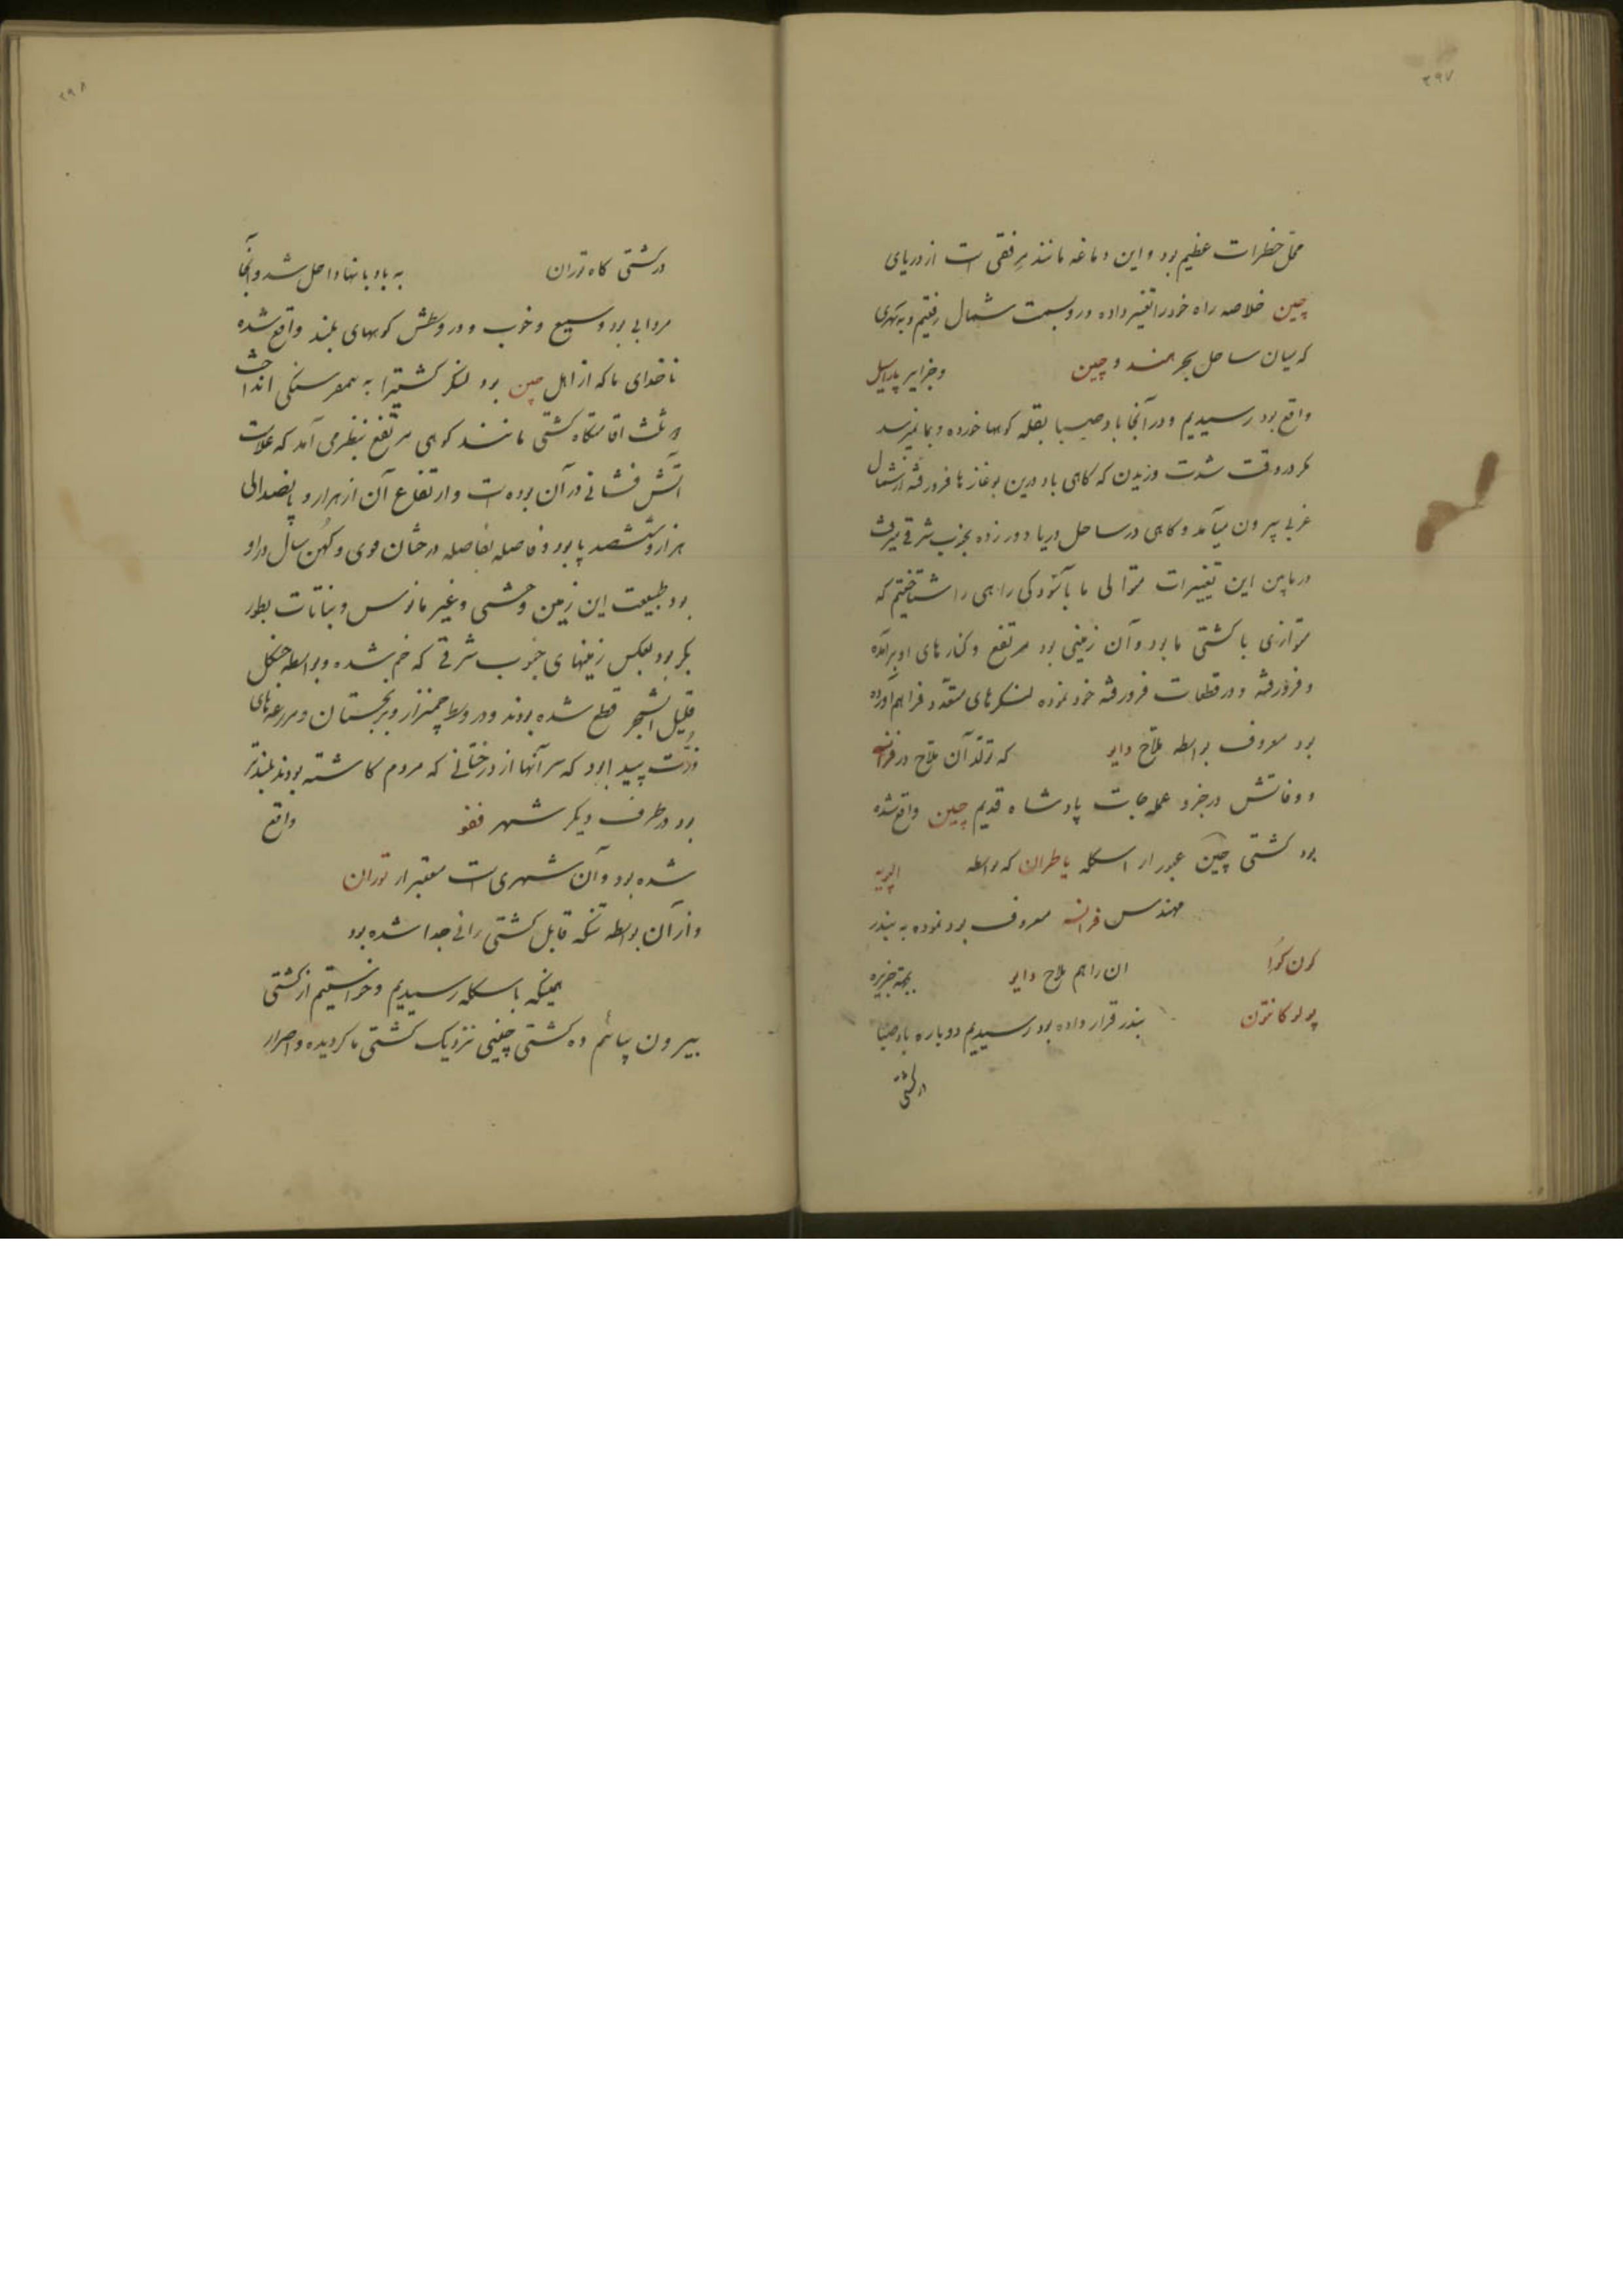 ۲۹۷
محل خطرات عظیم بود و این دماغه مانند مرفقی است از دریای
چین خلاصه راه خود را تغییر داده و رو بسمت شمال رفتیم و به
که میان ساحل بحر هند و چین و جزایر پاراسل
واقع بود رسیدیم و در آنجا باد صبا بقله کوهها خورده و بما نمیرسد
مگر در وقت شدت وزیدن که گاهی باد درین بوغازها فرو رفته از شمال
غربی بیرون میآمد و گاهی در ساحل دریا دور زده بجنوب شرقی میرفت
در مابین این تغییرات متوالی ما بآسودگی راهی را شناختیم که
متوازی با کشتی ما بود و آن زمینی بود مرتفع و کنارهای او برآمده
و فرو رفته و در قطعات فرو رفته خود نموده لنگرهای متعدد فراهم آورده
بود معروف بواسطه ملاح دایو که تولد آن ملاح در فرانسه
و وفاتش در جزو عمله جات پادشاه قدیم چین واقع شده
بود کشتی چین عبور از اسکله یاطران که بواسطه
مهندس فرانسه معروف بود نموده به بندر
کون کورا ان را هم ملاح دایو بجهة جزیره
پولو کانتون بندر قرار داده بود رسیدیم دوباره باد صبا
در کشتی
۲۹۸
در کشتی کاه توران به باد بانها داخل شد و آنجا
مردابی بود وسیع و خوب و در وسطش کوههای بلند واقع شده
ناخدای ما که از اهل چین بود لنگر کشتیرا به همفرسنگی انداخت
در پشت اقامتگاه کشتی مانند کوهی مرتفع بنظر می آمد که علامت
آتش فشانی در آن بوده است و ارتفاع آن از هزار و پانصد الی
هزار و ششصد پا بود و فاصله بفاصله درختان قوی و کهن سال در او
بود طبیعت این زمین وحشی و غیر مانوس و نباتات بطور
بکر بود بعکس زمینهای جنوب شرقی که خم شده و بواسطه جنگل
قلیل الشجر قطع شده بودند و در وسط چمنزار و برنجستان و مزرعه های
ذرت پیدا بود که سر آنها از درختانی که مردم کاشته بودند بلندتر
بود در طرف دیگر شهر ففو واقع
شده بود و آن شهری است معتبر از توران
و از آن بواسطه تنگه قابل کشتی رانی جدا شده بود
همینکه باسکله رسیدیم و خواستیم از کشتی
بیرون بیائیم ده کشتی چینی نزدیک کشتی ما گردیده و اصرار